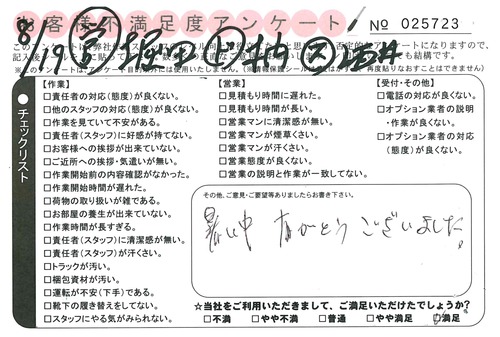 お客様不満足度アンケート
No 025723
8/19
【作業】
□責任者の対応(態度)が良くない。
□他のスタッフの対応(態度)が良くない。
□作業を見ていて不安がある。
□責任者(スタッフ)に好感が持てない。
□お客様への挨拶が出来ていない。
□ご近所への挨拶・気遣いが無い。
□作業開始前の内容確認がなかった。
□作業開始時間が遅れた。
□荷物の取り扱いが雑である。
□お部屋の養生が出来ていない。
□作業時間が長すぎる。
□責任者(スタッフ)に清潔感が無い。
□責任者(スタッフ)が汗くさい。
□トラックが汚い。
□梱包資材が汚い。
□運転が不安(下手)である。
□靴下の履き替えをしてない。
□スタッフにやる気がみられない。
チェックリスト
【営業】
□見積もり時間に遅れた。
□見積もり時間が長い。
□営業マンに清潔感が無い。
□営業マンが煙草くさい。
□営業マンが汗くさい。
□営業態度が良くない。
□営業の説明と作業が一致してない。
【受付・その他】
□電話の対応が良くない。
□オプション業者の説明
・作業が良くない。
□オプション業者の対応
(態度)が良くない。
その他、ご意見・ご要望等ありましたらお書き下さい。
暑い中 ありがとう ございました。
☆当社をご利用いただきまして、ご満足いただけたでしょうか?
□不満 □やや不満 □普通 □やや満足 □満足